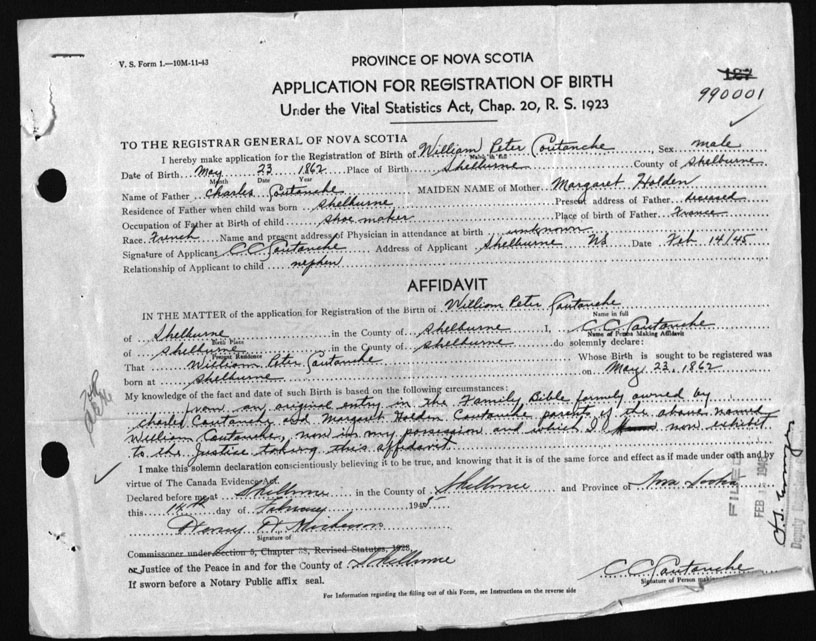 V. S. Form 1.—10M-11-43
PROVINCE OF NOVA SCOTIA
APPLICATION FOR REGISTRATION OF BIRTH
Under the Vital Statistics Act, Chap. 20, R. S. 1923
990001
TO THE REGISTRAR GENERAL OF NOVA SCOTIA
I hereby make application for the Registration of Birth of William Peter Coutanche, Sex male
Name in full
Date of Birth May 23 1862 Place of Birth Shelburne County of Shelburne
Month Date Year
Name of Father Charles Coutanche MAIDEN NAME of Mother Margaret Holden
Residence of Father when child was born Shelburne Present address of Father deceased
Occupation of Father at Birth of child shoe maker Place of birth of Father France
Race French Name and present address of Physician in attendance at birth unknown
Signature of Applicant C C Coutanche Address of Applicant Shelburne NS Date Feb 14/45
Relationship of Applicant to child nephew
AFFIDAVIT
IN THE MATTER of the application for Registration of the Birth of William Peter Coutanche
Name in full
of Shelburne in the County of Shelburne I, C. C. Coutanche
Birth Place Name of Person Making Affidavit
of Shelburne in the County of Shelburne do solemnly declare:
Present Residence
That William Peter Coutanche Whose Birth is sought to be registered was
born at Shelburne on May 23, 1862
My knowledge of the fact and date of such Birth is based on the following circumstances:
an original entry in the Family Bible owned by
Charles Coutanche and Margaret Holden Coutanche parents of the above named
William Coutanche, now in my possession and which I now exhibit
to the Justice taking this affidavit
I make this solemn declaration conscientiously believing it to be true, and knowing that it is of the same force and effect as if made under oath and by
virtue of The Canada Evidence Act.
Declared before me at Shelburne in the County of Shelburne and Province of Nova Scotia
this 14th day of February 1945
Henry A
Signature of
Commissoner under Section 5, Chapter 38, Revised Statutes, 1923
or Justice of the Peace in and for the County of Shelburne
If sworn before a Notary Public affix seal.
C C Coutanche
Signature of Person
For Information regarding the filling out of this Form, see Instructions on the reverse side
FILED
FEB
Deputy